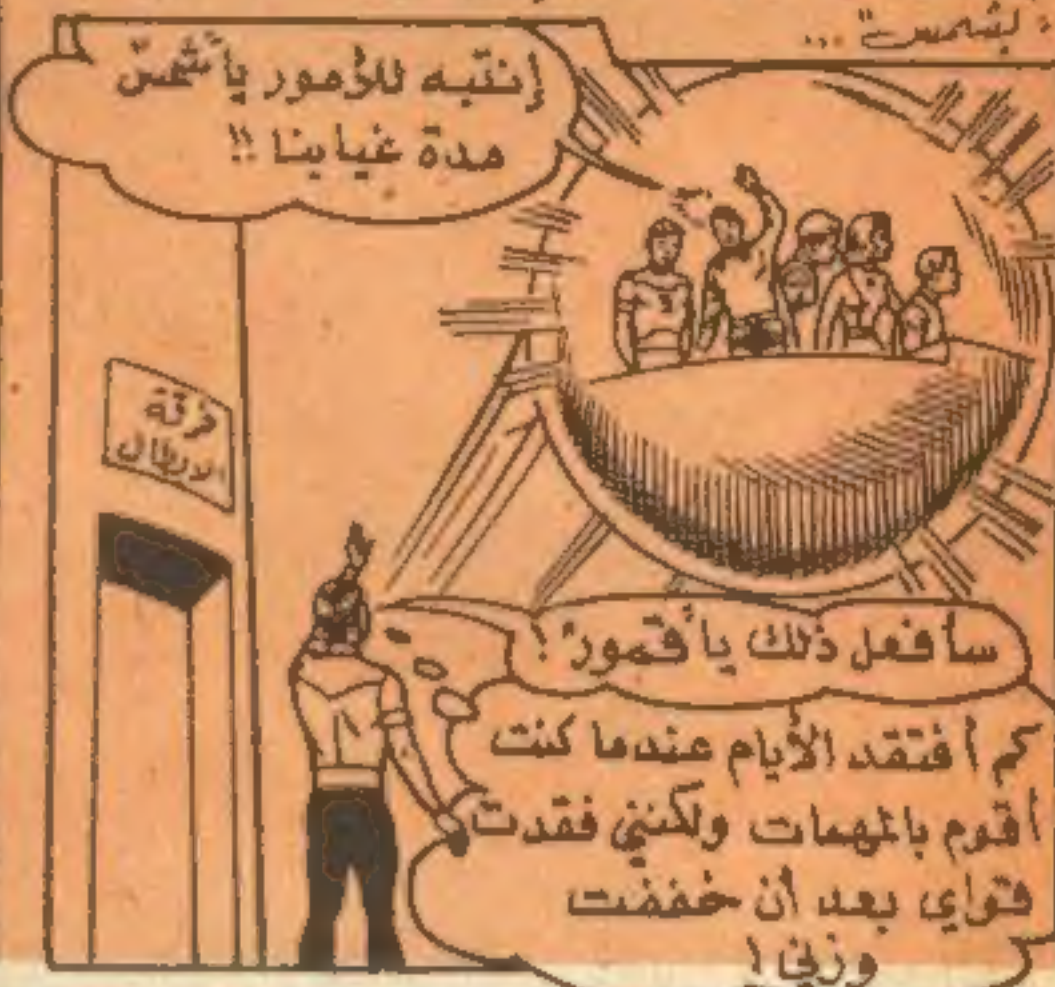 لشمس" ...
إنتبه للأمور يا "شمس"
مدة غيابنا !!
فرقة
الابطال
سأفعل ذلك يا "قمور" !
كم أفتقد الأيام عندما كنت
أقوم بالمهمات ولكنني فقدت
قواي بعد أن خففت
وزني !